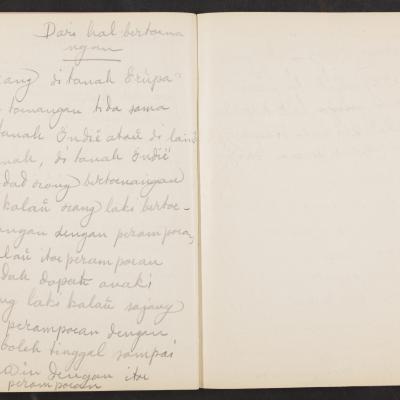 Dari hal bertoena
ngan
orang di tanah Erupa
toenangan tida sama
tanah Indië ataü di lain
tanah, di tanah Indië
adad orang bertoenangan
kalaü orang laki bertoe-
nangan dengan perampoean,
kalaü itoe perampoean
soedah dapat anak
orang laki kalaü sajang
perampoean dengan
boleh tinggal sampai
kawin dengan itoe
perampoean